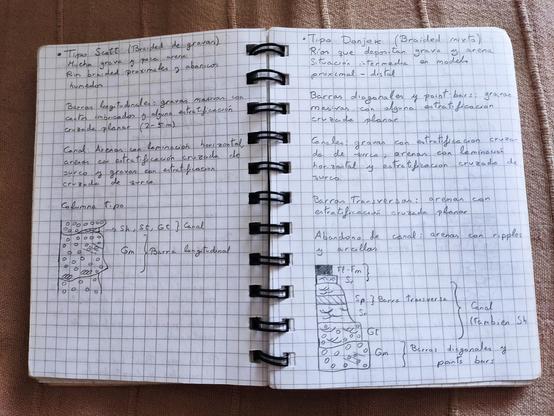 • Tipo Scott (Braided de gravas)
Mucha grava y poca arena
Rio braided proximales y abanicos
humedos
Barras longitudinales: gravas masivas con
cantos imbricados y alguna estratificación
cruzada planar (2-5m)
Canal: Arenas con laminación horizontal,
arenas con estratificación cruzada de
surco y gravas con estratificación
cruzada de surco
Columna tipo
Sh, St, Gt } Canal
Gm } Barra longitudinal
• Tipo Donjek (Braided mixto)
Ríos que depositan grava y arena
Situación intermedia en modelo
proximal - distal
Barras diagonales y point bars: gravas
masivas con alguna estratificación
cruzada planar
Canales: gravas con estratificación cruza-
da de surco, arenas con laminación
horizontal y estratificación cruzada de
surco
Barras transversas: arenas con
estratificación cruzada planar
Abandono de canal: arenas con ripples
y arcillas
Fl-Fm }
Sr
Sp } Barra transversa
St
Gt
Canal
(también Sh
Gm } Barras diagonales y
point bars